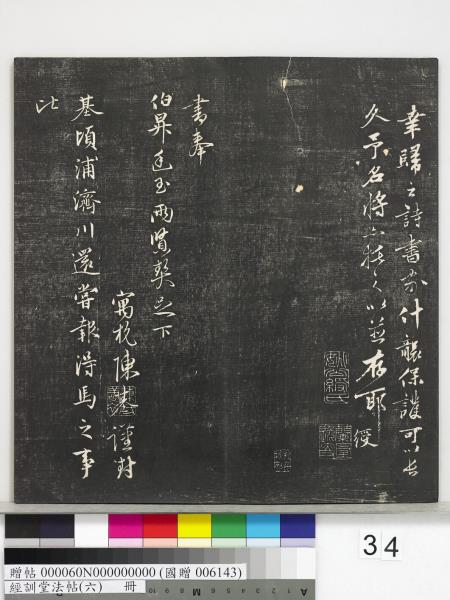 幸歸之詩書家什襲保護可以長
久予名將亦托之以並存耶 綬
書奉
伯昇廷玉兩賢契足下
寓杭陳基謹封
基頃浦濟川還嘗報得馬之事
此
34
贈帖 000060N000000000 (國贈 006143)
經訓堂法帖(六) 冊